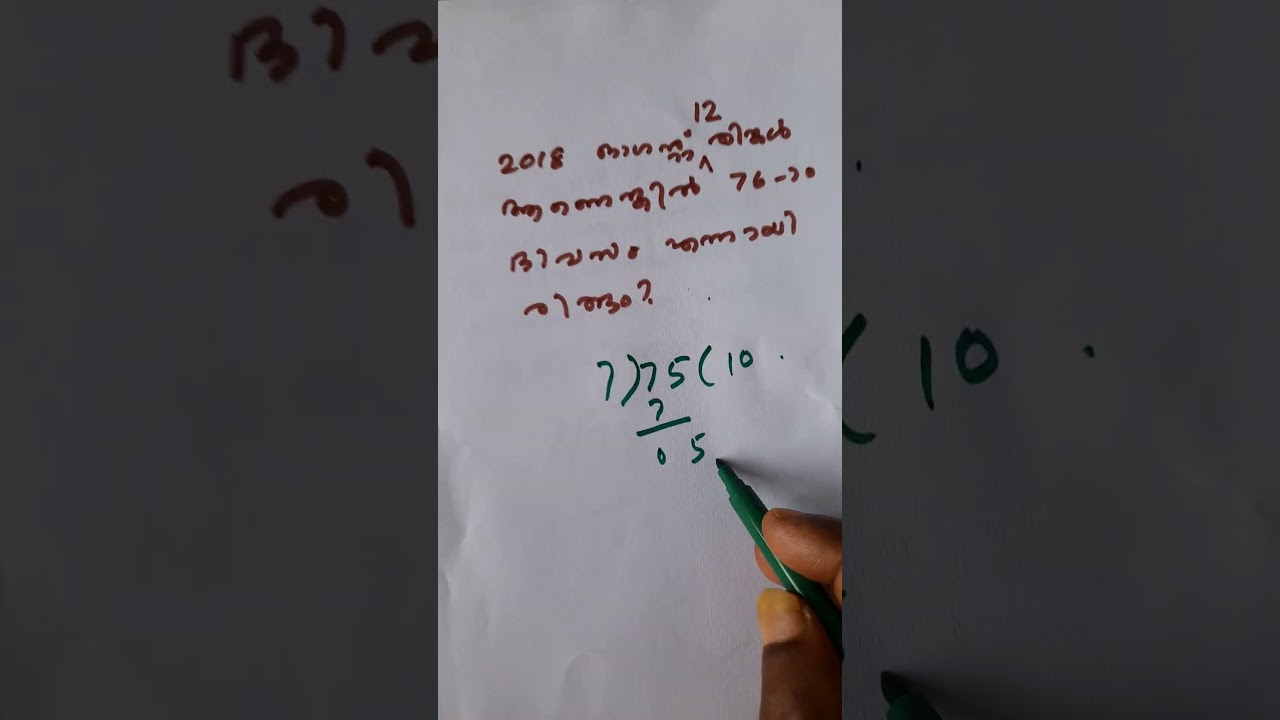 12
2018 ഓഗസ്റ്റ് ^ തിങ്കൾ
ആണെങ്കിൽ 76-ാം
ദിവസം എന്തായി
രിക്കും?
7)75(10
7
05